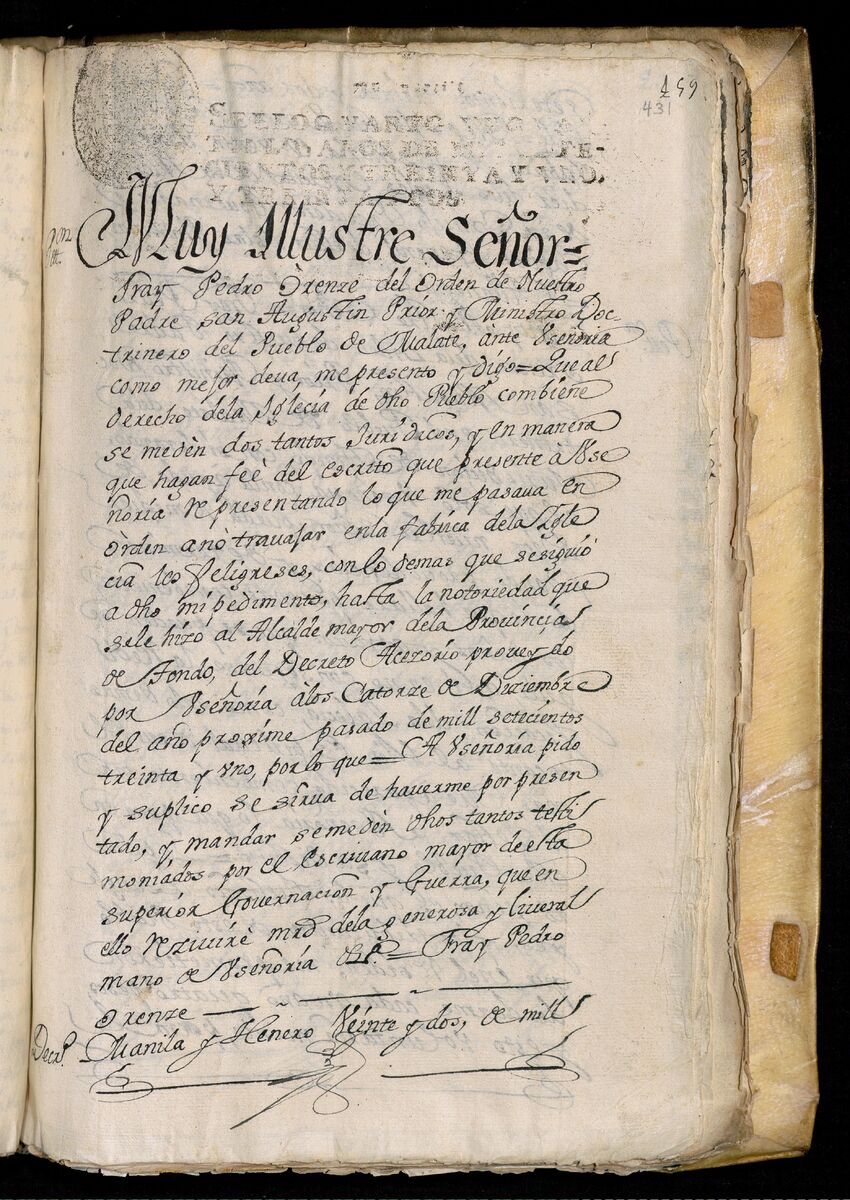 459
431
SELLO QVARTO, VNO
CIENTOS Y TREINTA Y VNO,
Muy Illustre Señor=
Fray Pedro Orenze del Orden de Nuestro
Padre san Augustin Prior y Ministro Doc-
trinero del Pueblo de Malate, ànte Vseñoria
como mejor deva, me presento y digo= Que al
derecho dela Iglecia de dho Pueblo combiene
se me dèn dos tantos Juridicos, y en manera
que hagan feè del escrito que presente à Vse
ñoria representando lo que me pasava en
òrden anò travajar enla fabrica dela Igle
cia los feligreses, con lo demas que se siguiò
a dho mi pedimento, hasta la notoriedad que
sele hizo al Alcalde mayor dela Provincia
de Tondo, del Decreto Acezorio proveydo
por Vseñoria àlos Catorze de Diziembre
del año proxime pasado de mill setecientos
treinta y vno, por lo que= A Vseñoria pido
y suplico se sirva de haverme por presen
tado, y mandar se me dèn dhos tantos testi
moniados por el Escrivano mayor de esta
superior Governacion y Guerra, que en
ello rezivirè mrd dela generosa y liveral
mano de Vseñoria &ª= Fray Pedro
Orenze
Decrº. Manila y Henero Veinte y dos, de mill